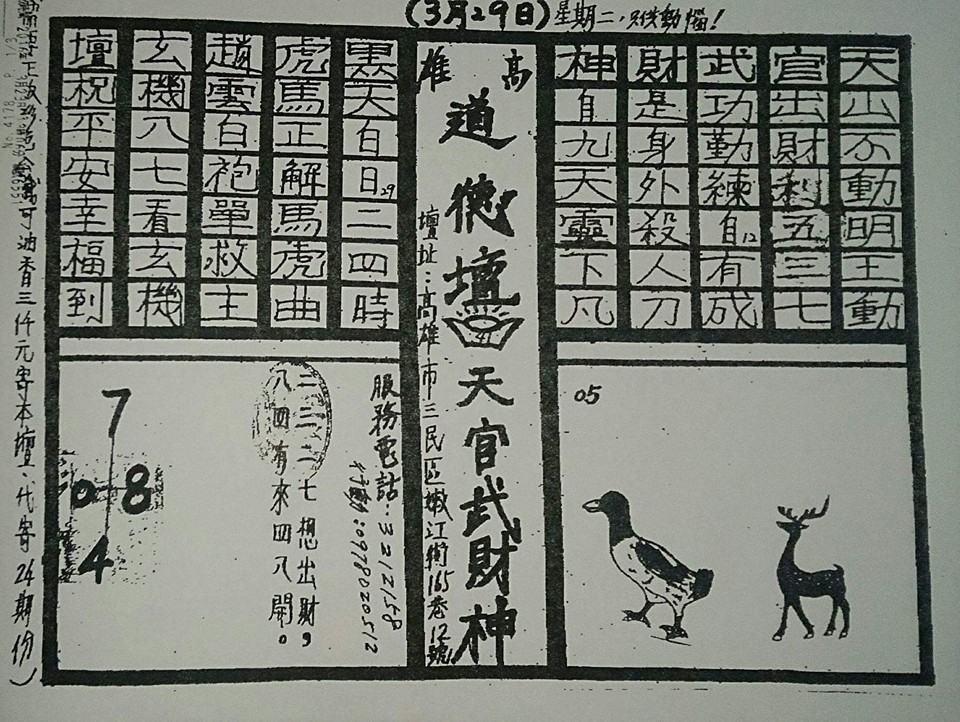 (3月29日)星期二
天山不動明王動
官出財利五三七
武功勤練自12有成
財是身外殺人刀
神自九天靈下凡
高雄
道德壇
天官武財神
壇址:高雄市三民區嫩江街165巷12號
黑天白日29二四時
虎馬正解馬虎曲
趙雲白袍單救主
玄機八七看玄機
壇祝平安幸福到
05
服務電話:3212158
行動:0978020512
二二二七想出財,
八四有來四八開。
7
0 8
4
可油香三仟元寄本壇、代寄24期份)